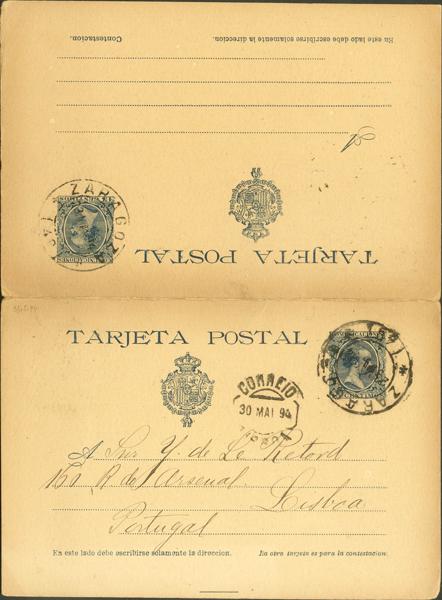 En este lado debe escribirse solamente la direccion.
Contestacion.
A
TARJETA POSTAL
ZARAGOZA
TARJETA POSTAL
ZARAGOZA
CORREIO
30 MAI 94
A Snr Y. de Le Retord
150 R do Arsenal
Lisboa
Portugal
En este lado debe escribirse solamente la direccion.
La otra tarjeta es para la contestacion.